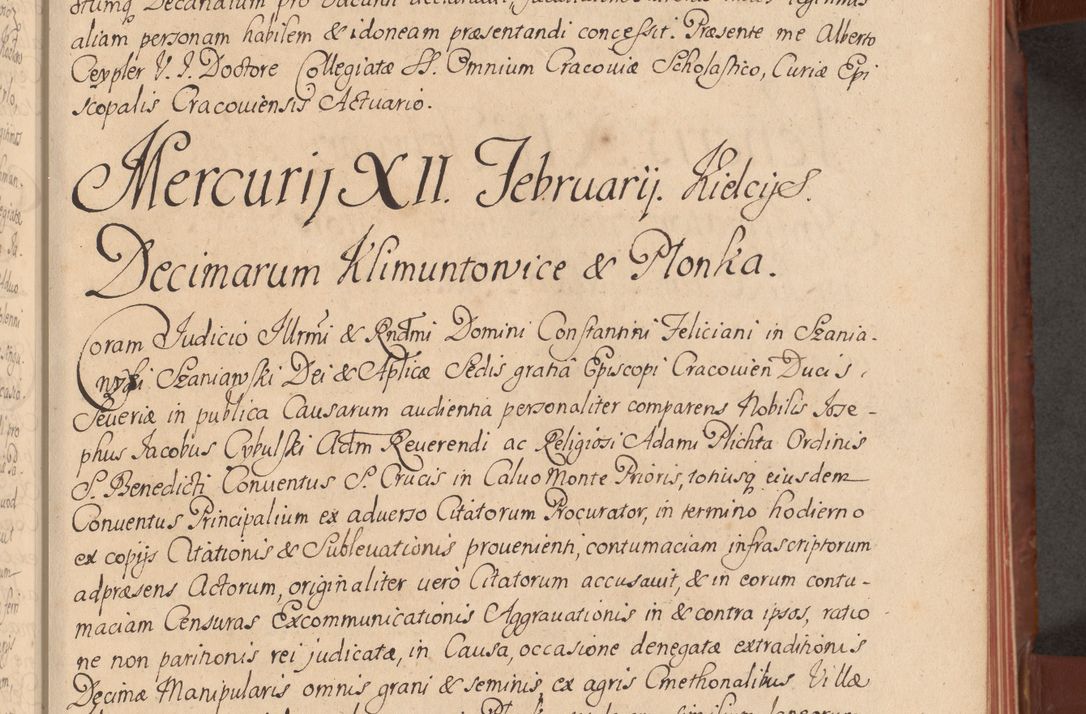 aliam personam habilem & idoneam præsentandi concessit. Præsente me Alberto
Ceypler V. I. Doctore Collegiatæ SS. Omnium Cracouiæ Scholastico, Curiæ Epi
scopalis Cracouiensis Actuario.
Mercurij XII. Februarij. Kielcijs.
Decimarum Klimuntowice & Plonka.
Coram Judicio Illrmi & Rndmi Domini Constantini Feliciani in Szania-
wski Szaniawski Dei & Aplicæ Sedis gratiâ Episcopi Cracouien Ducis
Seueriæ in publica Causarum audientia personaliter comparens Nobilis Iose-
phus Jacobus Cybulski Actm Reuerendi ac Religiosi Adami Plichta Ordinis
S. Benedicti Conuentus S. Crucis in Caluo Monte Prioris, totiusq eiusdem
Conuentus Principalium ex aduerso Citatorum Procurator, in termino hodierno
ex copijs Citationis & Subleuationis prouenienti, contumaciam infrascriptorum
adpræsens Actorum, originaliter uerò Citatorum accusauit, & in eorum contu-
maciam Censuras Excommunicationis Aggrauationis in & contra ipsos, ratio
ne non paritionis rei judicatæ, in Causa, occasione denegatæ extraditionis
Decimæ Manipularis omnis grani & seminis, ex agris Cmethonalibus Villæ